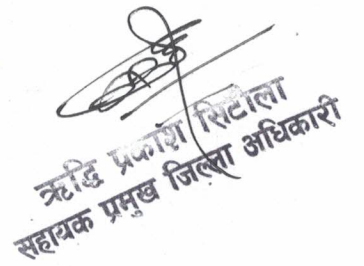 ऋद्धि प्रकाश सिटौला
सहायक प्रमुख जिल्ला अधिकारी